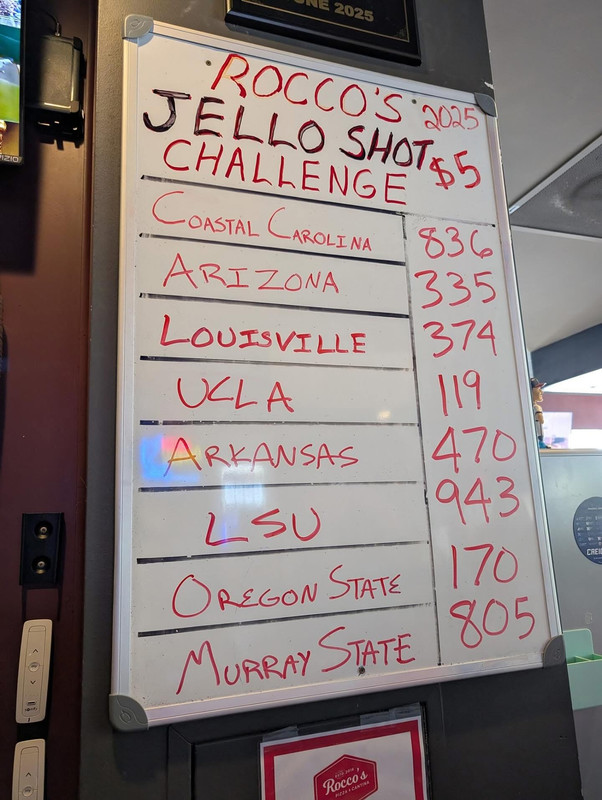 JUNE 2025
ROCCO'S 2025
JELLO SHOT
CHALLENGE $5
COASTAL CAROLINA 836
ARIZONA 335
LOUISVILLE 374
UCLA 119
ARKANSAS 470
LSU 943
OREGON STATE 170
MURRAY STATE 805
VIZIO
Rocco's
PIZZA & CANTINA